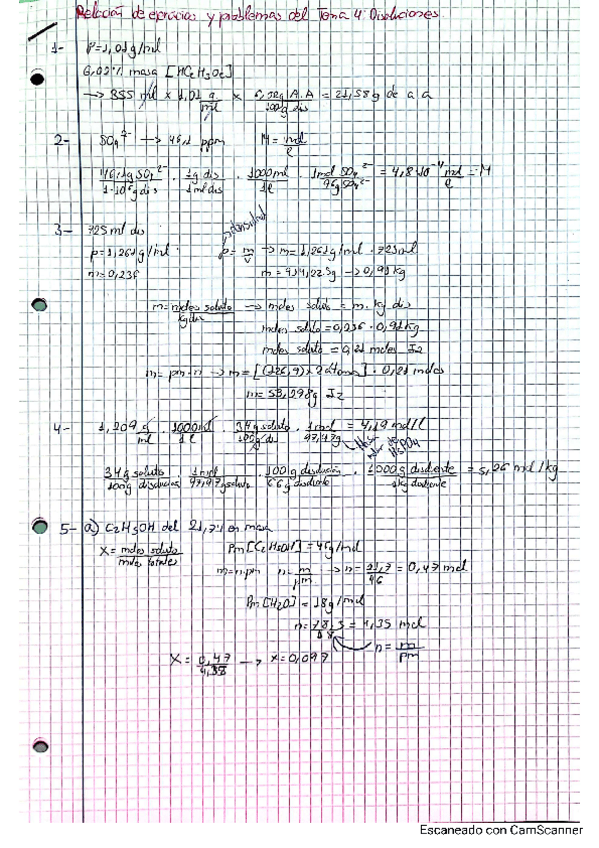 Relación de ejercicios y problemas del Tema 4: Disoluciones
1- ρ=1,01g/ml
6,02% masa [HC2H3O2]
→ 355 ml × 1,01 g/ml × 6,02g A.A/100g dis = 21,58g de a a
2- SO4 2- → 46,1 ppm M = mol/l
46,1g SO4 2-/1·10⁶g dis · 1g dis/1ml dis · 1000ml/1l · 1mol SO4 2-/96g SO4 2- = 4,8·10⁻⁴ mol/l = M
3- 725 ml dis
ρ=1,261g/ml ρ = m/v → m=1,261g/ml · 725ml
m=0,236 m = 914,225g → 0,91kg
m = moles soluto/kg dis → moles soluto = m · kg dis
moles soluto = 0,236 · 0,91kg
moles soluto = 0,21 moles I2
m = pm · n → m = [(126,9) × 2 átomos] · 0,21 moles
m = 53,298g I2
4- 1,209 g/ml · 1000ml/1l · 34g soluto/100g dis · 1mol/97,97g = 4,19 mol/l
H3PO4
34g soluto/100g disolución · 1mol/97,97g soluto · 100g disolución/66g disolvente · 1000g disolvente/1kg disolvente = 5,26 mol/kg
5- a) C2H5OH del 21,7% en masa
X = moles soluto/moles totales Pm [C2H5OH] = 46g/mol
m=n·pm n = m/pm → n = 21,7/46 = 0,47 mol
Pm [H2O] = 18g/mol
n = 78,3/18 = 4,35 mol
n = m/pm
X = 0,47/4,35 → X = 0,097
Escaneado con CamScanner